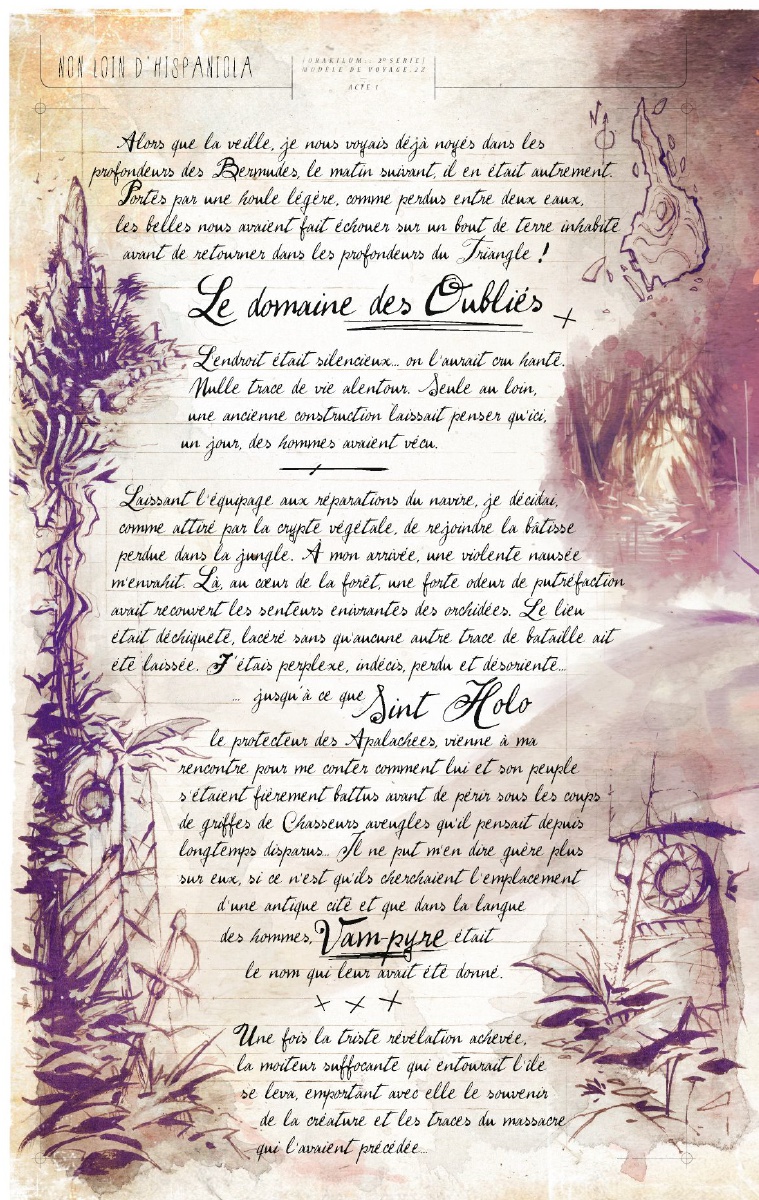 NON LOIN D'HISPANIOLA
[ORAKILUM:: 2º SERIE]
MODELE DE VOYAGE.2Z
ACTE I
N
Alors que la veille, je nous voyais déjà noyés dans les
profondeurs des Bermudes, le matin suivant, il en était autrement.
Portés par une houle légère, comme perdus entre deux eaux,
les belles nous avaient fait échouer sur un bout de terre inhabité
avant de retourner dans les profondeurs du Triangle !
Le domaine des Oubliés
L'endroit était silencieux... on l'aurait cru hanté.
Nulle trace de vie alentour. Seule au loin,
une ancienne construction laissait penser qu'ici,
un jour, des hommes avaient vécu.
Laissant l'équipage aux réparations du navire, je décidai,
comme attiré par la crypte végétale, de rejoindre la bâtisse
perdue dans la jungle. A mon arrivée, une violente nausée
m'envahit. Là, au cœur de la forêt, une forte odeur de putréfaction
avait recouvert les senteurs enivrantes des orchidées. Le lieu
était déchiqueté, lacéré sans qu'aucune autre trace de bataille ait
été laissée. J'étais perplexe, indécis, perdu et désorienté...
... jusqu'à ce que Sint Holo
le protecteur des Apalachees, vienne à ma
rencontre pour me conter comment lui et son peuple
s'étaient fièrement battus avant de périr sous les coups
de griffes de Chasseurs aveugles qu'il pensait depuis
longtemps disparus... Il ne put m'en dire guère plus
sur eux, si ce n'est qu'ils cherchaient l'emplacement
d'une antique cité et que dans la langue
des hommes, Vam-pyre était
le nom qui leur avait été donné.
Une fois la triste révélation achevée,
la moiteur suffocante qui entourait l'île
se leva, emportant avec elle le souvenir
de la créature et les traces du massacre
qui l'avaient précédée...